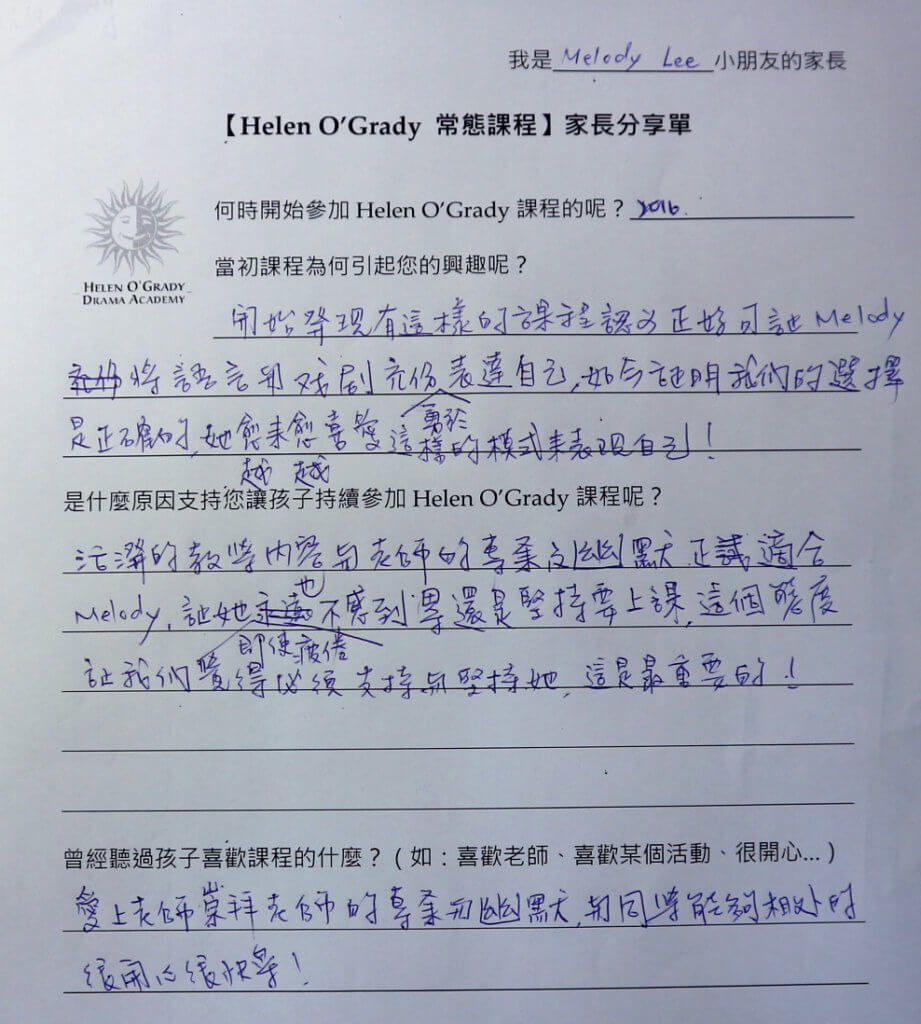 我是 Melody Lee 小朋友的家長
【Helen O'Grady 常態課程】家長分享單
HELEN O'GRADY
DRAMA ACADEMY
何時開始參加 Helen O'Grady 課程的呢？2016.
當初課程為何引起您的興趣呢？
開始發現有這樣的課程認為正好可讓 Melody
將語言與戏剧充份表達自己,如今証明我們的選擇
勇於
是正確的,她愈來愈喜愛這樣的模式來表現自己!
越 越
是什麼原因支持您讓孩子持續參加 Helen O'Grady 課程呢？
活潑的教學內容与老師的專業及幽默正誠適合
也
Melody,让她不感到累還是堅持要上課,這個態度
即使疲倦
让我們覺得必須支持与堅持她,這是最重要的!
曾經聽過孩子喜歡課程的什麼？（如：喜歡老師、喜歡某個活動、很開心...）
愛上老師崇拜老師的專業与幽默,与同學能夠相处的
很開心很快樂!